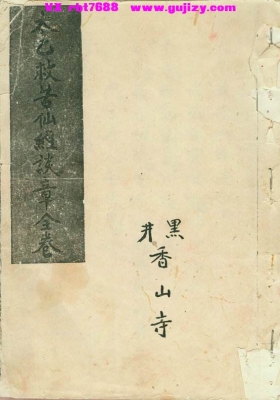 KX rbt7688 www.gujizy.com
太乙救苦仙經談章全卷
黑井
香山寺